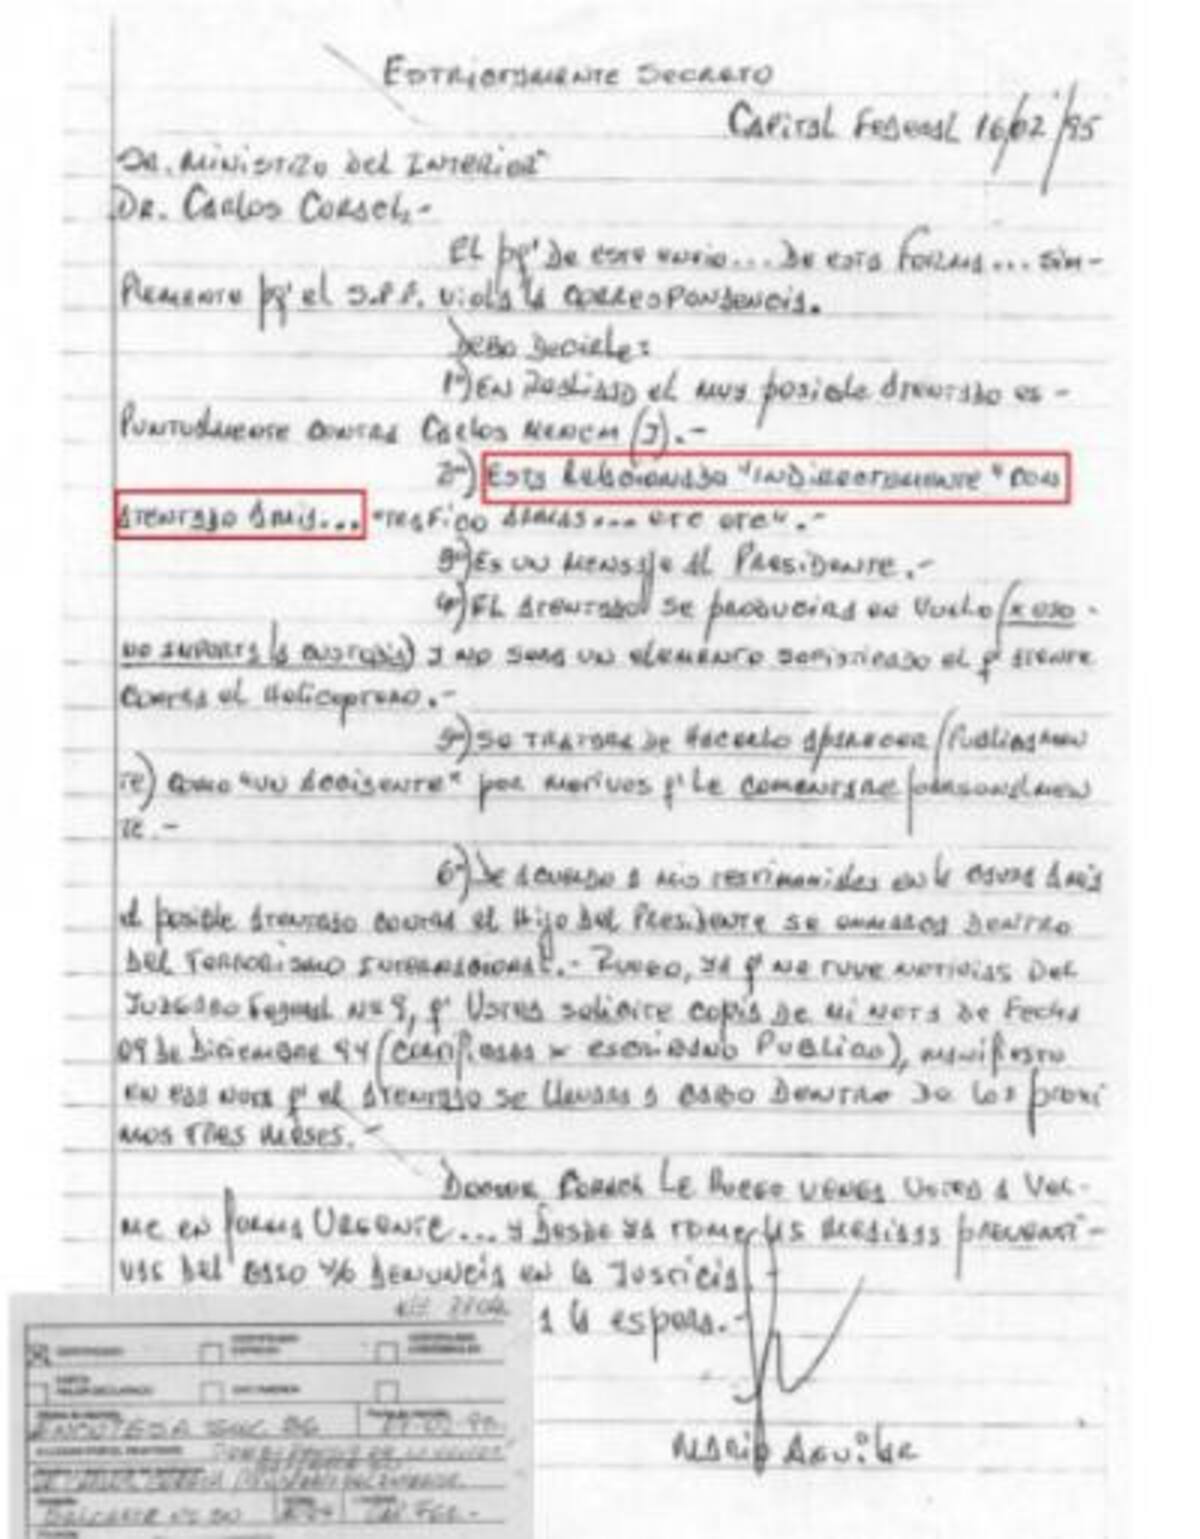 ESTRICTAMENTE SECRETO
CAPITAL FEDERAL 16/02/95
SR. MINISTRO DEL INTERIOR
DR. CARLOS CORACH.-
EL pq' DE ESTE ENVIO... DE ESTA FORMA... SIM-
PLEMENTE pq' EL S.P.F. VIOLA LA CORRESPONDENCIA.
DEBO DECIRLE:
1º) EN REALIDAD EL MUY POSIBLE ATENTADO ES-
PUNTUALMENTE CONTRA CARLOS MENEM (J).-
2º) ESTA RELACIONADO "INDIRECTAMENTE" CON
ATENTADO AMIA... "TRAFICO ARMAS... ETC ETC".-
3º) ES UN MENSAJE AL PRESIDENTE.-
4º) EL ATENTADO SE PRODUCIRA EN VUELO (x ESO
NO IMPORTA LA CUSTODIA) Y NO SERA UN ELEMENTO SOFISTICADO EL q' ATENTE
CONTRA EL HELICOPTERO.-
5º) SE TRATARA DE HACERLO APARECER (PUBLICAMEN
TE) COMO "UN ACCIDENTE" POR MOTIVOS q' LE COMENTARE PERSONALMEN
TE.-
6º) DE ACUERDO A MIS TESTIMONIALES EN LA CAUSA AMIA
EL POSIBLE ATENTADO CONTRA EL HIJO DEL PRESIDENTE SE ENMARCA DENTRO
DEL TERRORISMO INTERNACIONAL.- RUEGO, YA q' NO TUVE NOTICIAS DEL
JUZGADO FEDERAL Nº 9, q' USTED SOLICITE COPIA DE MI NOTA DE FECHA
09 DE DICIEMBRE 94 (CERTIFICADA x ESCRIBANO PUBLICO), MANIFIESTO
EN ESA NOTA q' EL ATENTADO SE LLEVARA A CABO DENTRO DE LOS PROXI
MOS TRES MESES.-
DOCTOR CORACH LE RUEGO VENGA USTED A VER-
ME EN FORMA URGENTE... Y DESDE YA TOME LAS MEDIDAS PREVENTI-
VAS DEL CASO Y/O DENUNCIA EN LA JUSTICIA.
A LA ESPERA.-
MARIO AGUILAR
CERTIFICADO
ENCOTESA SUC. 26
BALCARCE Nº 50
CAP FED.-